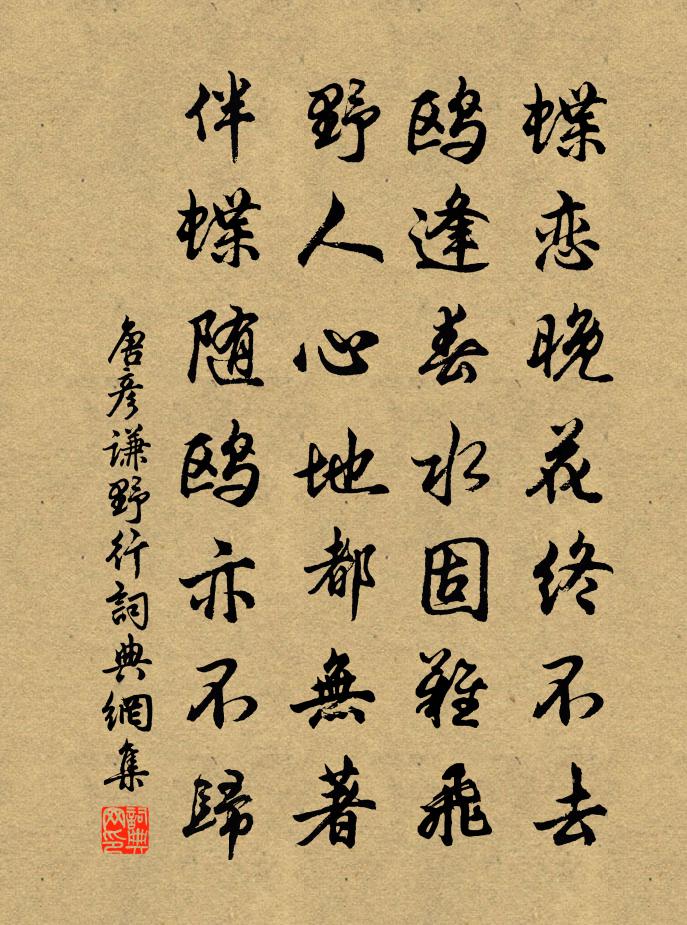 蝶恋晚花终不去
鸥逢春水固難飛
野人心地都無著
伴蝶随鸥亦不歸
唐彦谦野行詞典網集
詞典网印